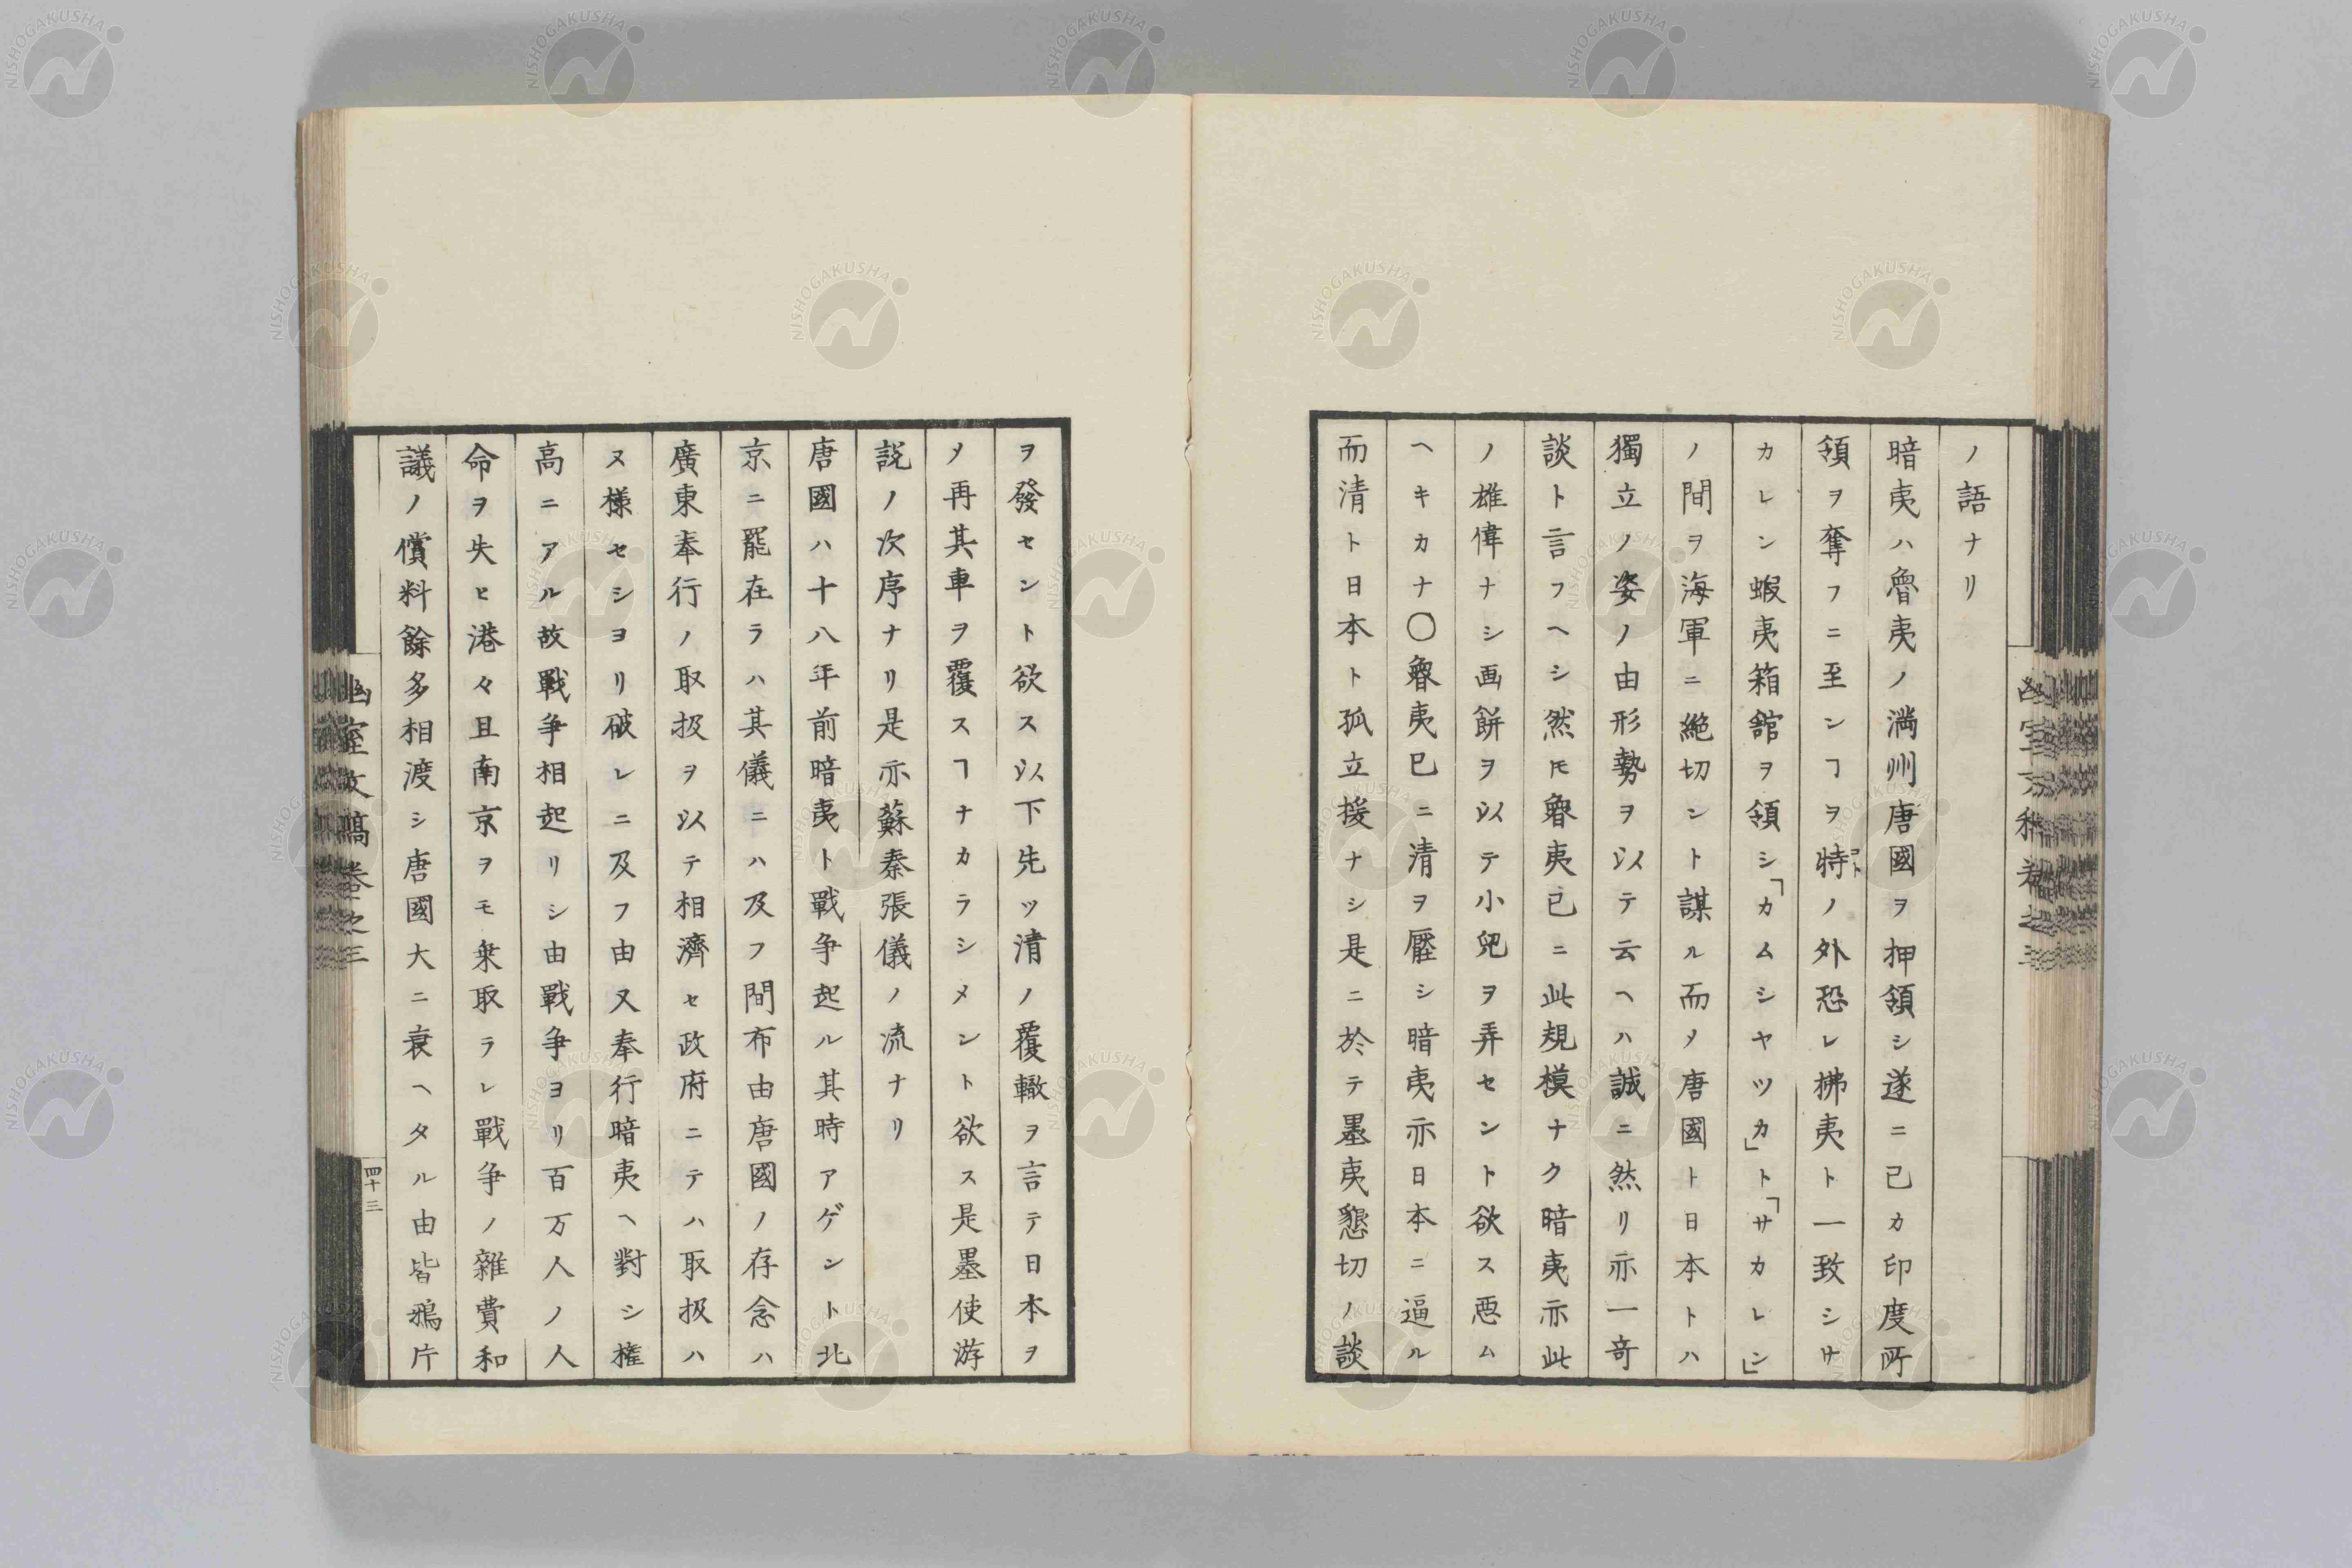 ノ語ナリ
暗夷ハ魯夷ノ満州唐國ヲ押領シ遂ニ己カ印度所
領ヲ奪フニ至ンヿヲ特ノ外恐レ拂夷ト一致シサ
カレン蝦夷箱舘ヲ領シ「カムシヤツカ」ト「サカレン」
ノ間ヲ海軍ニ絶切シト謀ル而〆唐國ト日本トハ
獨立ノ姿ノ由形勢ヲ以テ云ヘハ誠ニ然リ亦一奇
談ト言フヘシ然𪜈魯夷已ニ此規模ナク暗夷亦此
ノ雄偉ナシ画餅ヲ以テ小兒ヲ弄セント欲ス悪ム
ヘキカナ〇魯夷巳ニ清ヲ壓シ暗夷亦日本ニ逼ル
而清ト日本ト孤立援ナシ是ニ於テ墨夷懇切ノ談
ヲ發セント欲ス以下先ツ清ノ覆轍ヲ言テ日本ヲ
〆再其車ヲ覆スヿナカラシメント欲ス是墨使游
説ノ次序ナリ是亦蘇秦張儀ノ流ナリ
唐國ハ十八年前暗夷ト戰争起ル其時アゲント北
京ニ罷在ラハ其儀ニハ及フ間布由唐國ノ存念ハ
廣東奉行ノ取扱ヲ以テ相濟セ政府ニテハ取扱ハ
ヌ様セシヨリ破レニ及フ由又奉行暗夷ヘ對シ権
高ニアル故戰争相起リシ由戰争ヨリ百万人ノ人
命ヲ失ヒ港々且南京ヲモ乗取ラレ戰争ノ雑費和
議ノ償料餘多相渡シ唐國大ニ衰ヘタル由皆鴉片
幽室文稿卷之三
四十三
NISHOGAKUSHA